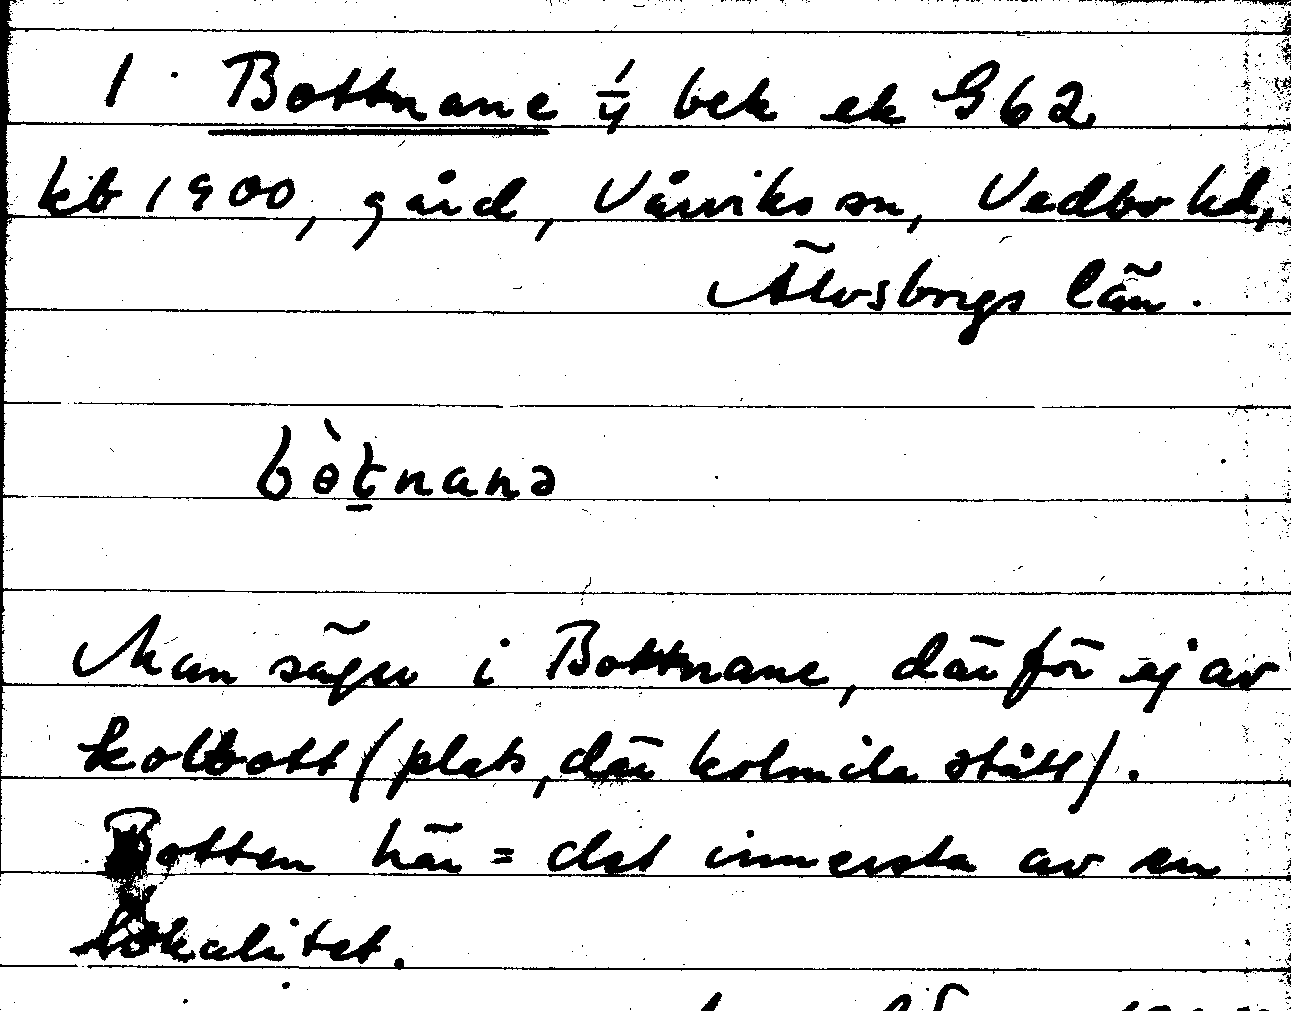 1. Bottnane 1/4 bek ek G62
kb 1900, gård, Vårviks sn, Vedbo hd,
Älvsborgs län.
bòt̠nanə
Man säger i Bottnane, därför ej av
kolbott (plats, där kolmila stått).
Botten här = det innersta av en
lokalitet.